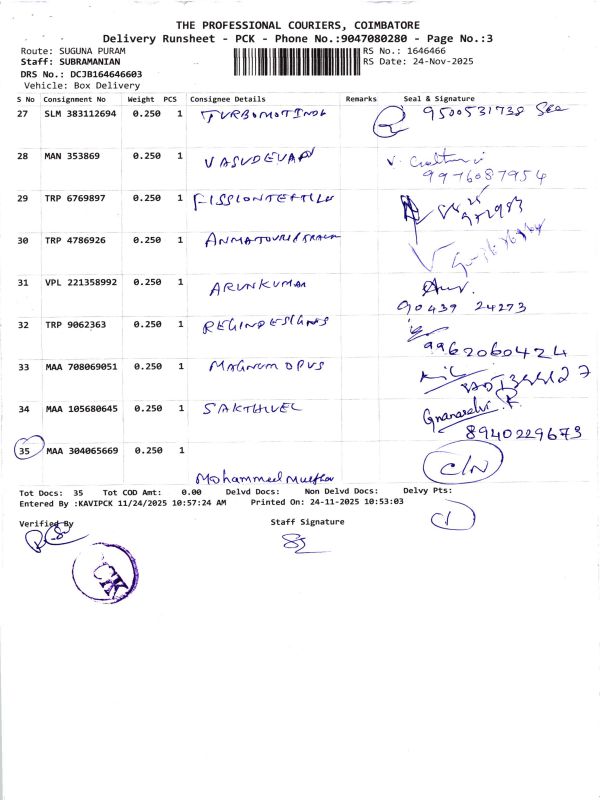 THE PROFESSIONAL COURIERS, COIMBATORE
Delivery Runsheet - PCK - Phone No.:9047080280 - Page No.:3
Route: SUGUNA PURAM RS No.: 1646466
Staff: SUBRAMANIAN RS Date: 24-Nov-2025
DRS No.: DCJB164646603
Vehicle: Box Delivery
S No Consignment No Weight PCS Consignee Details Remarks Seal & Signature
27 SLM 383112694 0.250 1 9500531738
28 MAN 353869 0.250 1 VASUDEVAN
9976087954
29 TRP 6769897 0.250 1
30 TRP 4786926 0.250 1
31 VPL 221358992 0.250 1 ARUNKUMAR
90439 24273
32 TRP 9062363 0.250 1 REGINDESIGNS
9962060424
33 MAA 708069051 0.250 1 MAGNUM OPUS
34 MAA 105680645 0.250 1 SAKTHIVEL
8940229673
35 MAA 304065669 0.250 1 C/N
Mohammed
Tot Docs: 35 Tot COD Amt: 0.00 Delvd Docs: Non Delvd Docs: Delvy Pts:
Entered By :KAVIPCK 11/24/2025 10:57:24 AM Printed On: 24-11-2025 10:53:03
Verified By Staff Signature
PCK